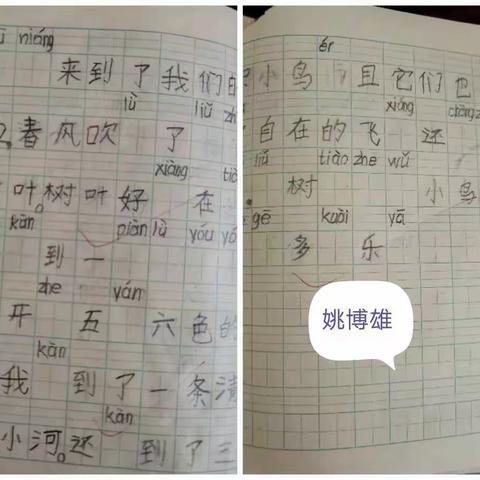 niáng
来到了我们
lǜ liǔ
春风吹 了
xiàng
叶树叶好 在
kàn piàn lǜ yóu
到一
zhe yán
开 五 六色的
kàn
我 到了一条清
kàn
小河。还 到了三
ér
小鸟 且它们也
xiáng
自在的飞 还
liǔ tiào zhe wǔ
树 小鸟
gē kuài yā
多 乐
姚博雄